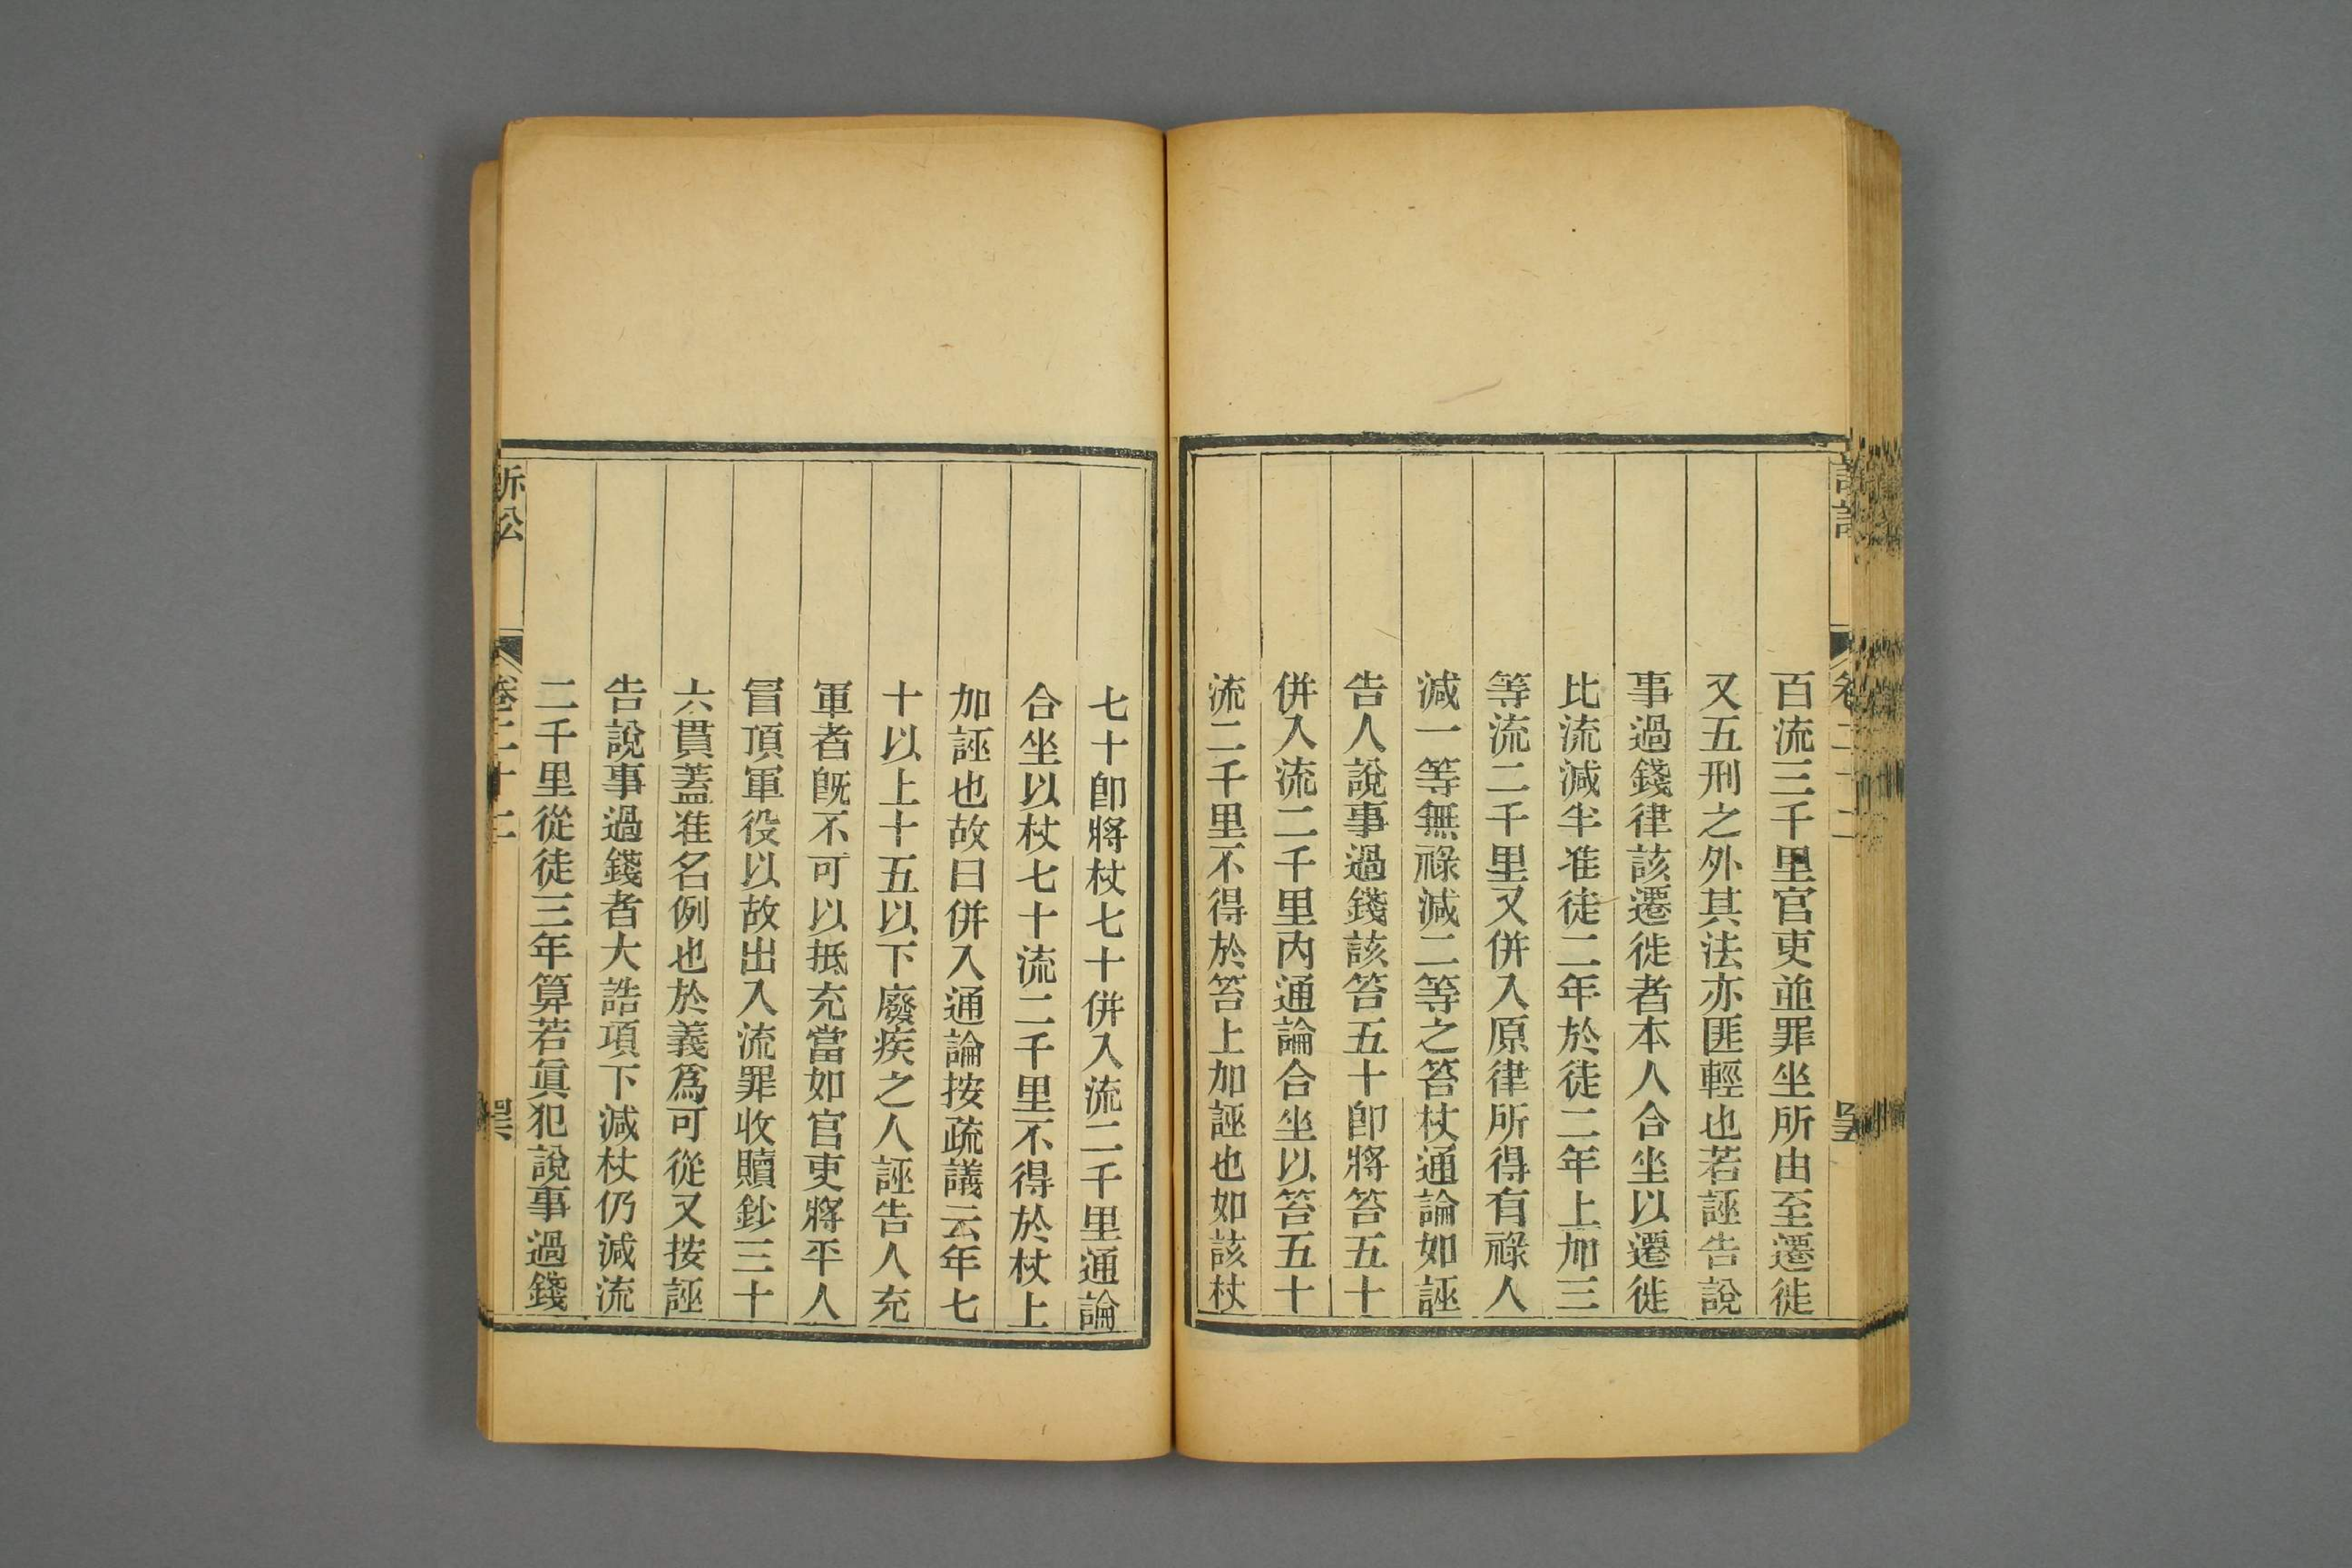 百流三千里官吏並罪坐所由至遷徙
又五刑之外其法亦匪輕也若誣告說
事過錢律該遷徙者本人合坐以遷徙
比流減半准徒二年於徒二年上加三
等流二千里又併入原律所得有祿人
減一等無祿減二等之笞杖通論如誣
告人說事過錢該笞五十卽將笞五十
併入流二千里內通論合坐以笞五十
流二千里不得於笞上加誣也如該杖
七十卽將杖七十併入流二千里通論
合坐以杖七十流二千里不得於杖上
加誣也故曰併入通論按疏議云年七
十以上十五以下廢疾之人誣告人充
軍者旣不可以抵充當如官吏將平人
冒頂軍役以故出入流罪收贖鈔三十
六貫蓋准名例也於義爲可從又按誣
告說事過錢者大誥項下減杖仍減流
二千里從徒三年算若眞犯說事過錢
訴訟 卷二十二